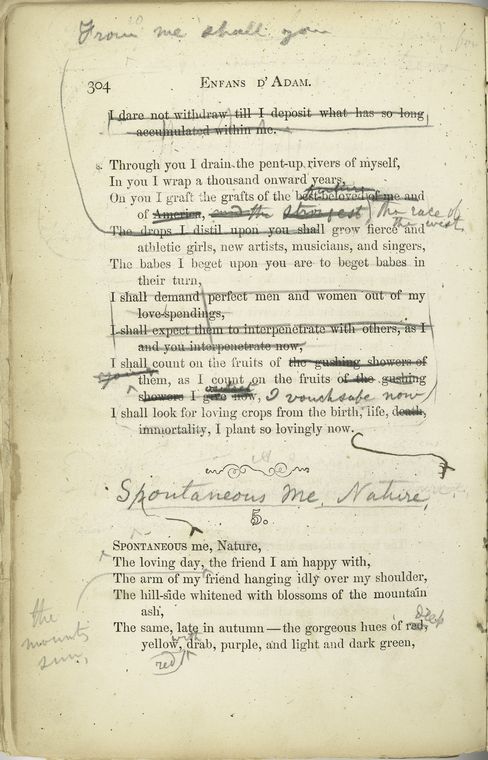 From me shall you
304
ENFANS D'ADAM.
I dare not withdraw till I deposit what has so long
accumulated within me.
8. Through you I drain the pent-up rivers of myself,
In you I wrap a thousand onward years,
On you I graft the grafts of the best-beloved of me and
of America, and the strongest the race of
the west
The drops I distil upon you shall grow fierce and
athletic girls, new artists, musicians, and singers,
The babes I beget upon you are to beget babes in
their turn,
I shall demand perfect men and women out of my
love-spendings,
I shall expect them to interpenetrate with others, as I
and you interpenetrate now,
I shall count on the fruits of the gushing showers of
them, as I count on the fruits of the gushing
showers I give now, I vouchsafe now
I shall look for loving crops from the birth, life, death,
immortality, I plant so lovingly now.
Spontaneous Me, Nature,
5.
SPONTANEOUS me, Nature,
The loving day, the friend I am happy with,
The arm of my friend hanging idly over my shoulder,
The hill-side whitened with blossoms of the mountain
ash,
the
mounting
sun,
The same, late in autumn — the gorgeous hues of red,
deep
with
yellow, drab, purple, and light and dark green,
red